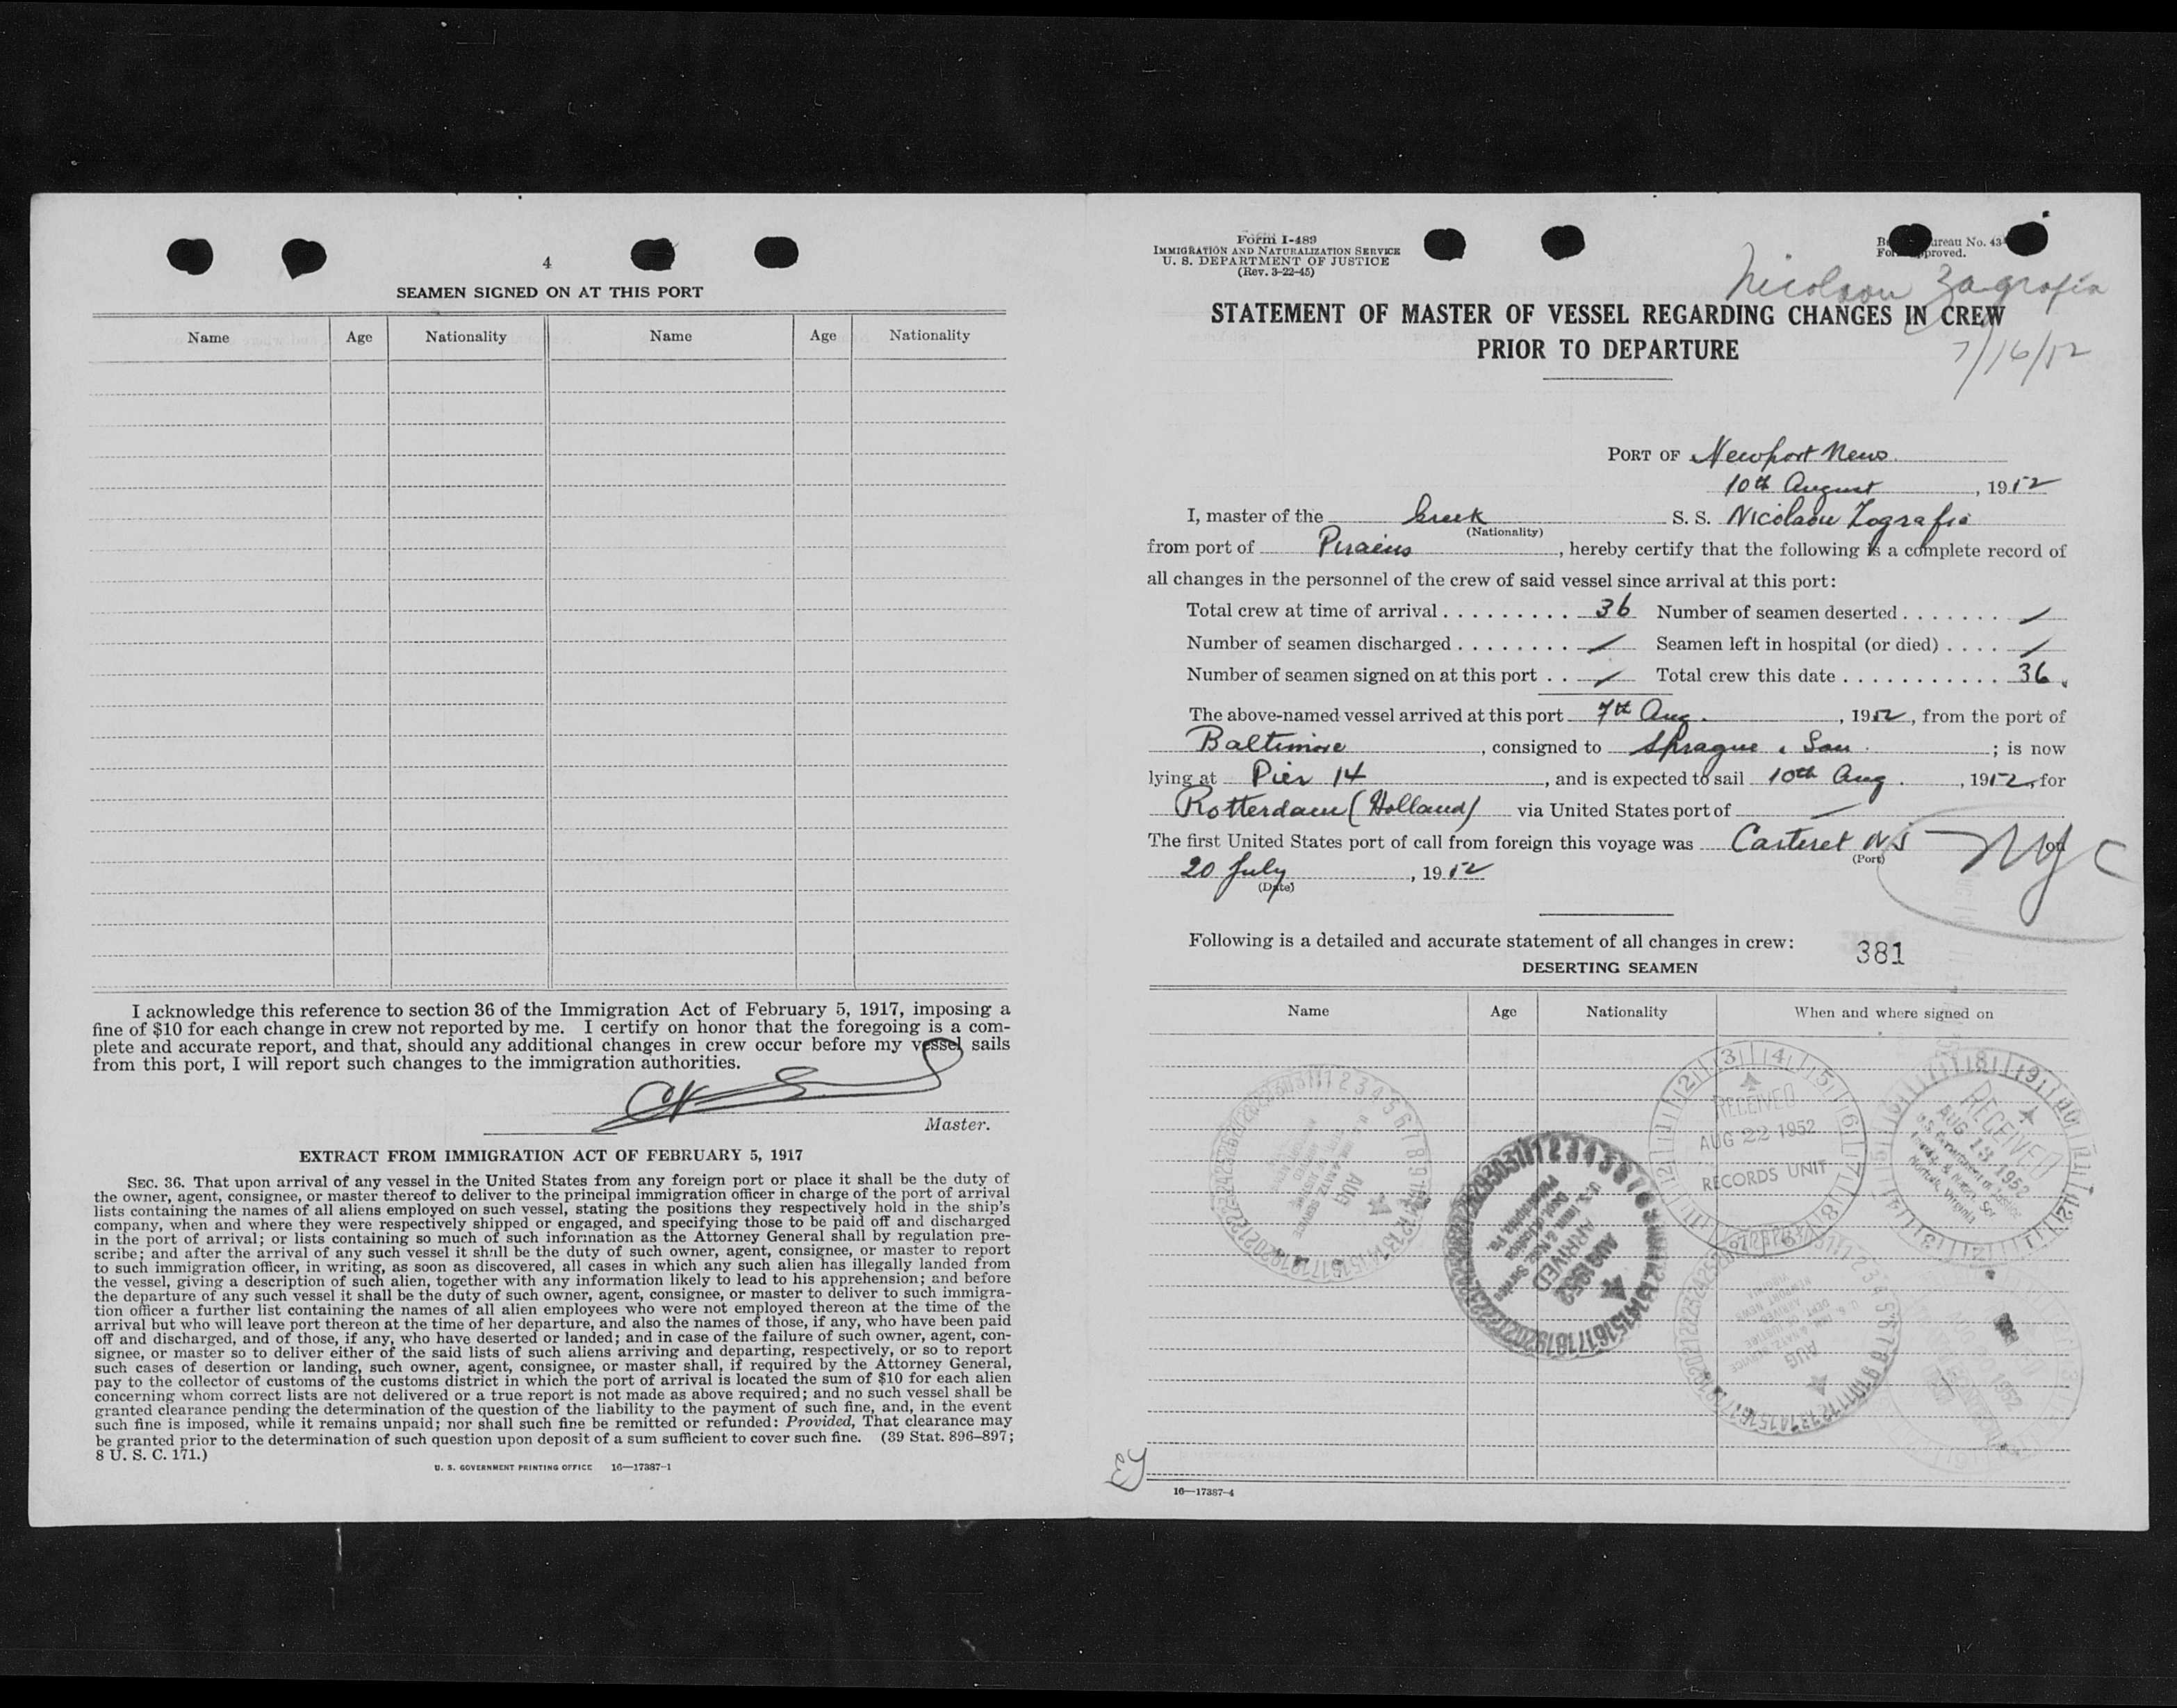 4
SEAMEN SIGNED ON AT THIS PORT
Name Age Nationality Name Age Nationality
I acknowledge this reference to section 36 of the Immigration Act of February 5, 1917, imposing a
fine of $10 for each change in crew not reported by me. I certify on honor that the foregoing is a com-
plete and accurate report, and that, should any additional changes in crew occur before my vessel sails
from this port, I will report such changes to the immigration authorities.
Master.
EXTRACT FROM IMMIGRATION ACT OF FEBRUARY 5, 1917
SEC. 36. That upon arrival of any vessel in the United States from any foreign port or place it shall be the duty of
the owner, agent, consignee, or master thereof to deliver to the principal immigration officer in charge of the port of arrival
lists containing the names of all aliens employed on such vessel, stating the positions they respectively hold in the ship's
company, when and where they were respectively shipped or engaged, and specifying those to be paid off and discharged
in the port of arrival; or lists containing so much of such information as the Attorney General shall by regulation pre-
scribe; and after the arrival of any such vessel it shall be the duty of such owner, agent, consignee, or master to report
to such immigration officer, in writing, as soon as discovered, all cases in which any such alien has illegally landed from
the vessel, giving a description of such alien, together with any information likely to lead to his apprehension; and before
the departure of any such vessel it shall be the duty of such owner, agent, consignee, or master to deliver to such immigra-
tion officer a further list containing the names of all alien employees who were not employed thereon at the time of the
arrival but who will leave port thereon at the time of her departure, and also the names of those, if any, who have been paid
off and discharged, and of those, if any, who have deserted or landed; and in case of the failure of such owner, agent, con-
signee, or master so to deliver either of the said lists of such aliens arriving and departing, respectively, or so to report
such cases of desertion or landing, such owner, agent, consignee, or master shall, if required by the Attorney General,
pay to the collector of customs of the customs district in which the port of arrival is located the sum of $10 for each alien
concerning whom correct lists are not delivered or a true report is not made as above required; and no such vessel shall be
granted clearance pending the determination of the question of the liability to the payment of such fine, and, in the event
such fine is imposed, while it remains unpaid; nor shall such fine be remitted or refunded: Provided, That clearance may
be granted prior to the determination of such question upon deposit of a sum sufficient to cover such fine. (39 Stat. 896–897;
8 U. S. C. 171.)
U. S. GOVERNMENT PRINTING OFFICE 16—17387-1
Form I-489
IMMIGRATION AND NATURALIZATION SERVICE
U. S. DEPARTMENT OF JUSTICE
(Rev. 3-22-45)
ureau No. 43
pproved.
Nicolaou Zagrafia
STATEMENT OF MASTER OF VESSEL REGARDING CHANGES IN CREW
PRIOR TO DEPARTURE
7/16/52
PORT OF Newport News
10th August, 1952
I, master of the Greek S. S. Nicolaou Zografia
(Nationality)
from port of Piraeus, hereby certify that the following is a complete record of
all changes in the personnel of the crew of said vessel since arrival at this port:
Total crew at time of arrival 36 Number of seamen deserted /
Number of seamen discharged / Seamen left in hospital (or died) /
Number of seamen signed on at this port / Total crew this date 36
The above-named vessel arrived at this port 7th Aug., 1952, from the port of
Baltimore, consigned to Sprague & Son; is now
lying at Pier 14, and is expected to sail 10th Aug., 1952, for
Rotterdam (Holland) via United States port of —
The first United States port of call from foreign this voyage was Carteret NJ on
(Port)
NYC
20 July, 1952
(Date)
Following is a detailed and accurate statement of all changes in crew:
381
DESERTING SEAMEN
Name Age Nationality When and where signed on
RECEIVED
AUG 22 1952
RECORDS UNIT
RECEIVED
AUG 13 1952
U.S. Department of Justice
Immig. & Natz. Ser
Norfolk, Virginia
ARRIVED
16—17387-4